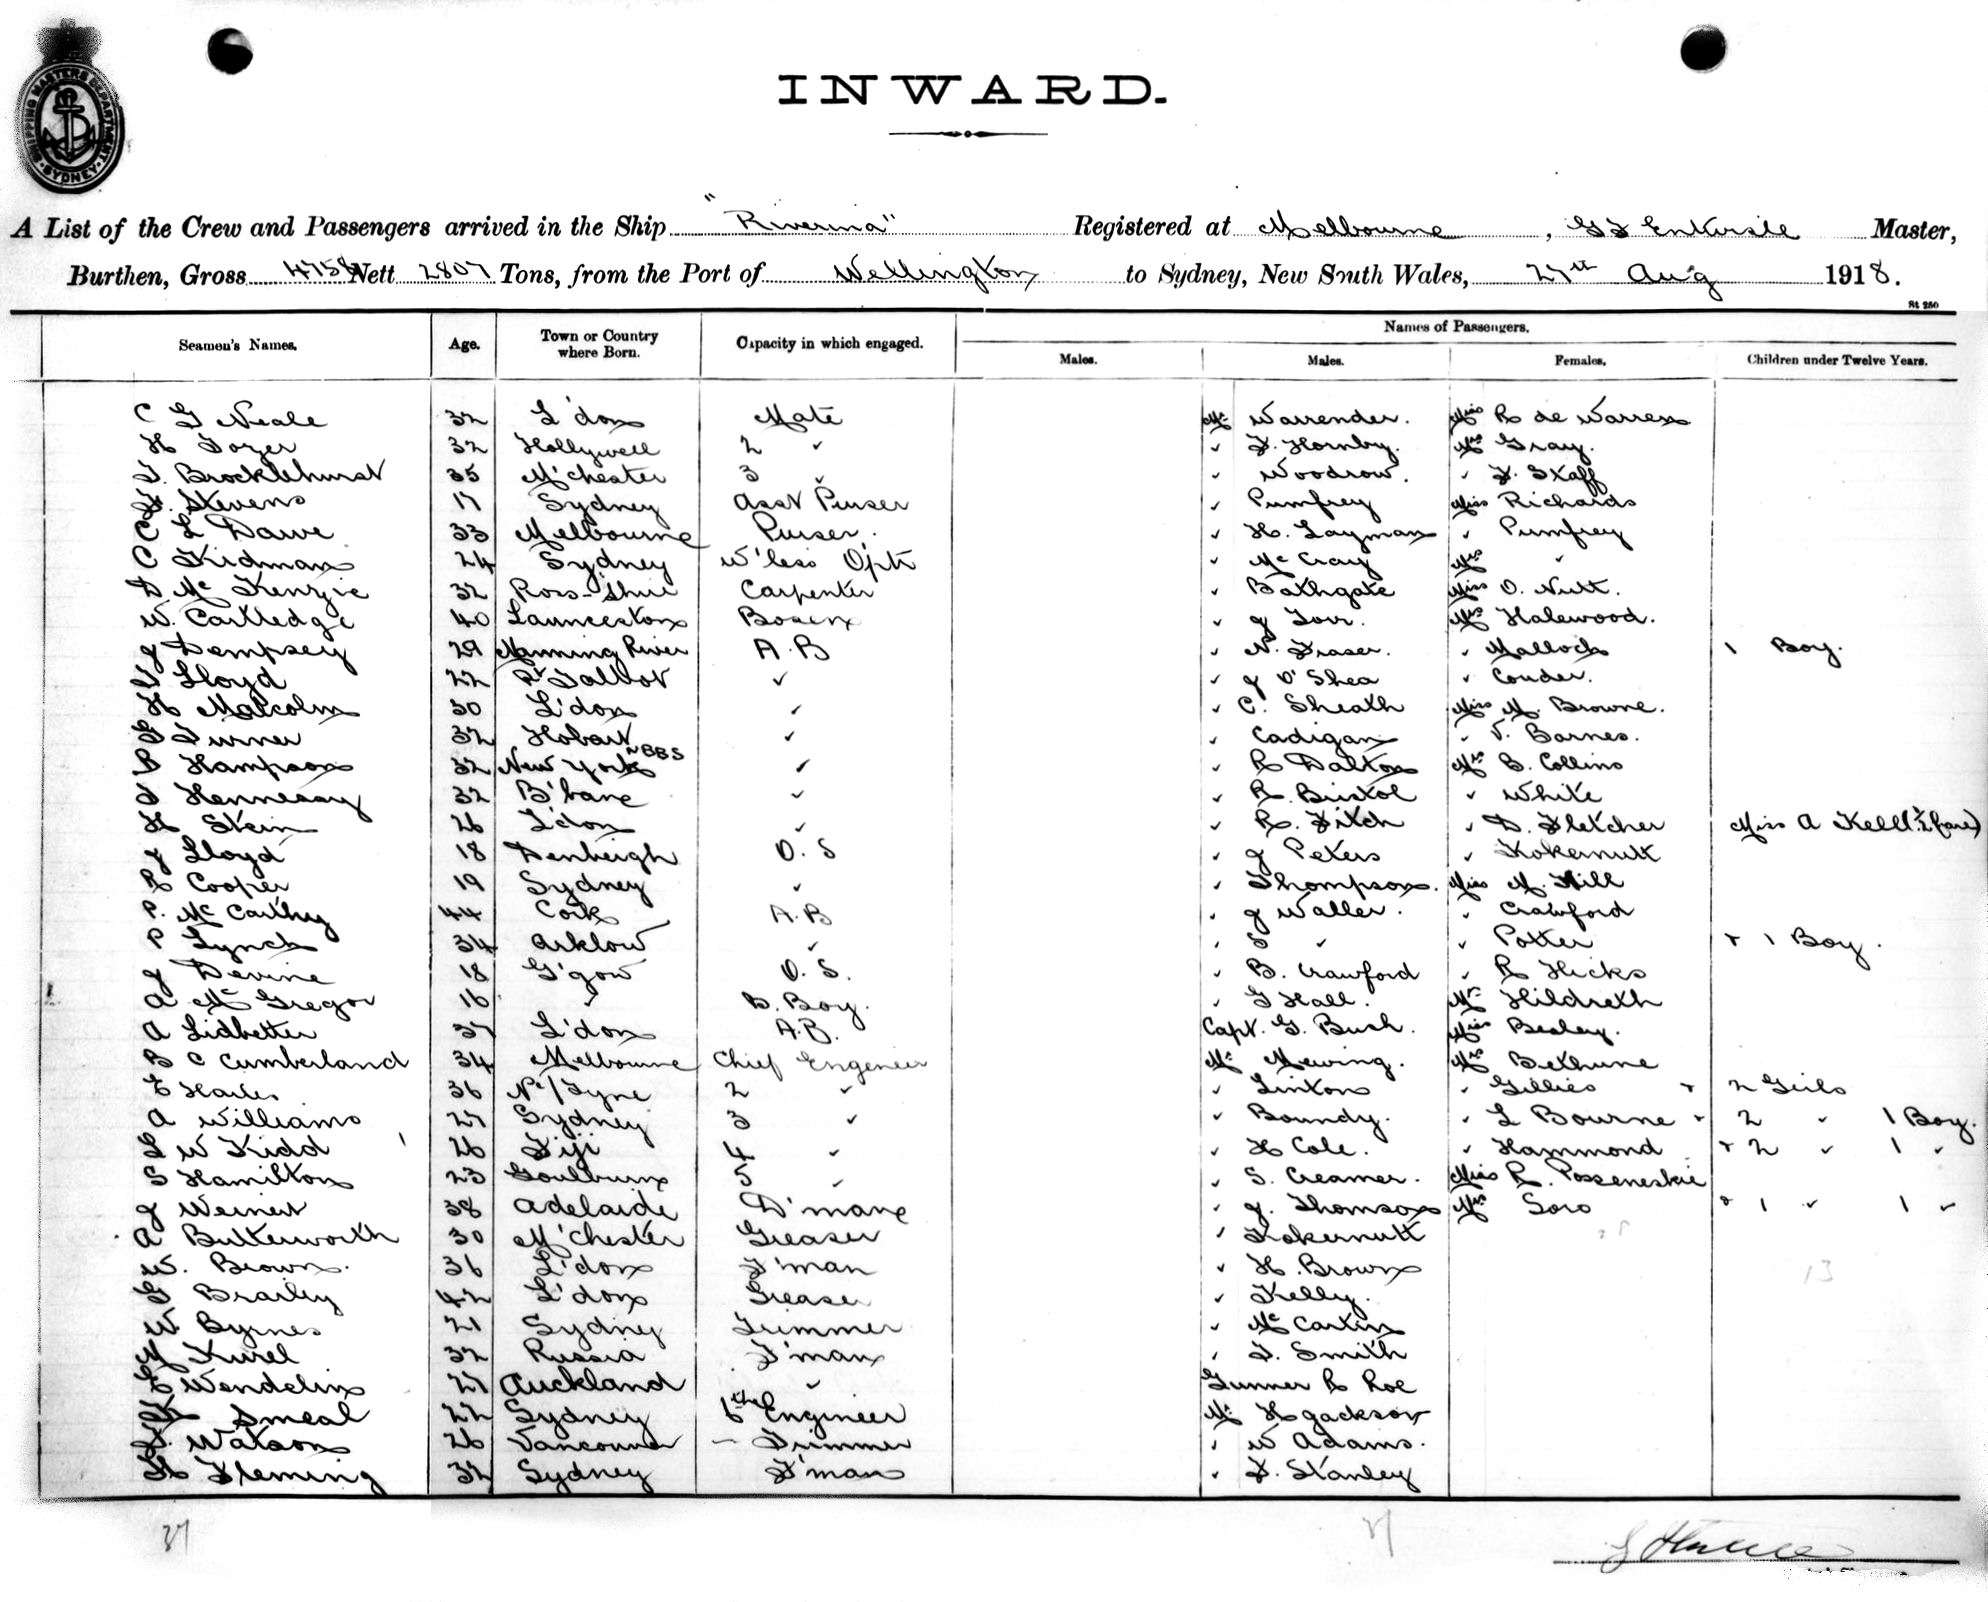 SHIPPING MASTERS DEPARTMENT
SYDNEY
INWARD.
A List of the Crew and Passengers arrived in the Ship "Riverina" Registered at Melbourne, Master,
Burthen, Gross 4758 Nett 2807 Tons, from the Port of Wellington to Sydney, New South Wales, 27th Aug 1918.
St 250
Seamen's Names. Age. Town or Country where Born. Capacity in which engaged. Names of Passengers.
Males. Males. Females. Children under Twelve Years.
C G Neale 32 L'don Mate Mr Warrender. Miss R de Warren
H Tozer 32 Hollywell 2 " " F. Hornby. Mrs Gray.
T. Brocklehurst 35 M'chester 3 " " Woodrow. " F. Staff
F. Stevens 17 Sydney Asst Purser " Pumfrey Miss Richards
C L Dawe 33 Melbourne Purser. " H. Layman " Pumfrey
C Kidman 24 Sydney W'less Opr " McCray Mrs "
D McKenzie 32 Ross-Shire Carpenter " Bathgate Miss O. Nutt.
W. Cartledge 40 Launceston Bosen " J Mrs Halewood.
J Dempsey 29 Manning River A.B " N. Fraser. " Mallock 1 Boy.
T Lloyd 22 Pt Talbot " " J O'Shea " Couder.
H Malcolm 30 L'don " " C. Sheath Miss M. Browne.
G Turner 32 Hobart " " Cadigan " V. Barnes.
B Hampson 32 New York NBBS " " R Dalton Mrs B. Collins
T Hennessy 32 B'bane " " R. Bristol " White
H Stein 26 L'don " " R. Fitch " D. Fletcher Miss A Kell (½ fare)
J Lloyd 18 Denbeigh O.S " J Peters " Kokernutt
R Cooper 19 Sydney " " Thompson. Miss M. Hill
P. McCarthy 44 Cork A.B " J Waller. " Crawford
P Lynch 34 Arklow " " S " " Potter + 1 Boy.
J Devine 18 G'gow O.S. " B. Crawford " R Hicks
A McGregor 16 " D. Boy. " G Hall. Mrs Hildreth
A Lidbetter 37 L'don A.B. Capt. G. Bush. Miss Besley.
B C Cumberland 34 Melbourne Chief Engineer Mr Mewing. Mrs Bethune
E 36 Nc/Tyne 2 " " Linton " Gillies + 2 Girls
A Williams 27 Sydney 3 " " Boundy. " L Bourne + 2 " 1 Boy.
L W Kidd 26 Fiji 4 " " H Cole. " Hammond + 2 " 1 "
S Hamilton 23 Goulburn 5 " " S. Creamer. Miss R. Posseneskie
J Weinert 38 Adelaide D'man " J. Thomson Mrs Soro + 1 " 1 "
A Butterworth 30 M'chester Greaser " Kokernutt
W. Brown. 36 L'don F'man " H. Brown 13
G Brailey 42 L'don Greaser " Kelly.
W Byrnes 21 Sydney Trimmer " McCartin
M Kurel 32 Russia F'man " F. Smith
E Wendelin 27 Auckland " Gunner R Roe
Smeal 22 Sydney 6th Engineer Mr H Jackson
J. Watson 26 Vancouver - Trimmer " W Adams.
H Fleming 32 Sydney F'man " F. Stanley
37 37